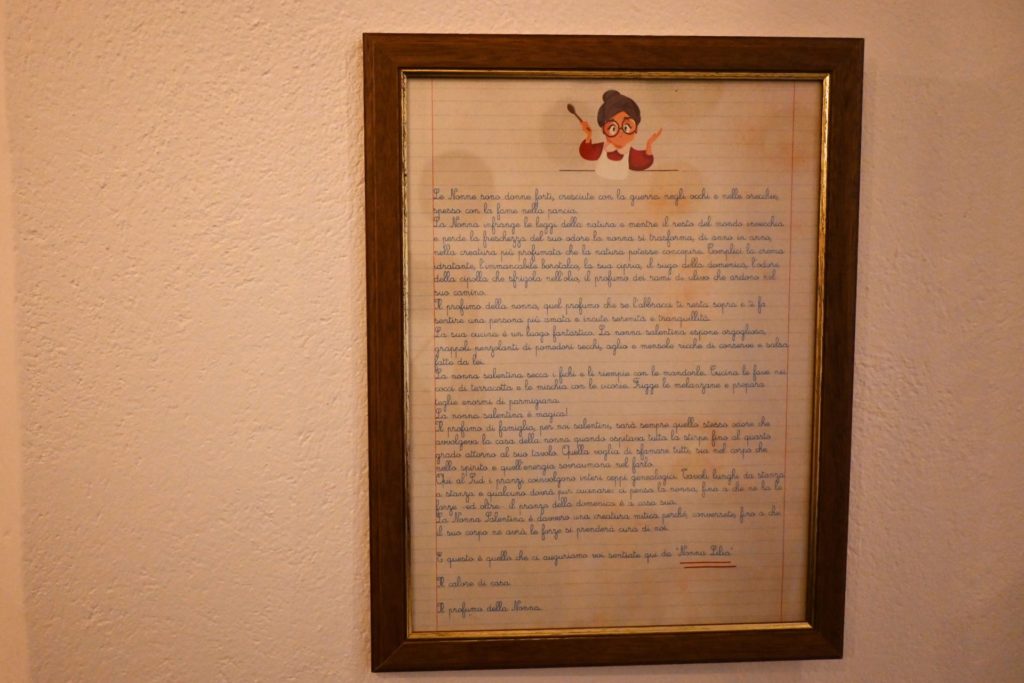 Le Nonne sono donne forti, cresciute con la guerra negli occhi e nelle orecchie,
spesso con la fame nella pancia.
La Nonna infrange le leggi della natura e mentre il resto del mondo invecchia
e perde la freschezza del suo odore la nonna si trasforma, di anno in anno,
nella creatura più profumata che la natura potesse concepire. Complici la crema
idratante, l'immancabile borotalco, la sua cipria, il sugo della domenica, l'odore
della cipolla che sfrigola nell'olio, il profumo dei rami di ulivo che ardono nel
suo camino.
Il profumo della nonna, quel profumo che se l'abbracci ti resta sopra e ti fa
sentire una persona più amata e incute serenità e tranquillità.
La sua cucina è un luogo fantastico. La nonna salentina espone orgogliosa,
grappoli penzolanti di pomodori secchi, aglio e mensole ricche di conserve e salsa
fatte da lei.
La nonna salentina secca i fichi e li riempie con le mandorle. Cucina le fave nei
cocci di terracotta e le mischia con le cicorie. Frigge le melanzane e prepara
teglie enormi di parmigiana.
La nonna salentina è magica!
Il profumo di famiglia, per noi salentini, sarà sempre quello stesso odore che
avvolgeva la casa della nonna quando ospitava tutta la stirpe fino al quarto
grado attorno al suo tavolo. Quella voglia di sfamare tutti, sia nel corpo che
nello spirito e quell'energia sovraumana nel farlo.
Qui al Sud i pranzi coinvolgono interi ceppi genealogici. Tavoli lunghi da stanza
a stanza e qualcuno dovrà pur cucinare: ci pensa la nonna, fino a che ne ha le
forze ed oltre il pranzo della domenica è a casa sua.
La Nonna Salentina è davvero una creatura mitica perché, converrete, fino a che
il suo corpo ne avrà le forze si prenderà cura di noi.
E questo è quello che ci auguriamo voi sentiate qui da "Nonna Lilia"
Il calore di casa.
Il profumo della Nonna.